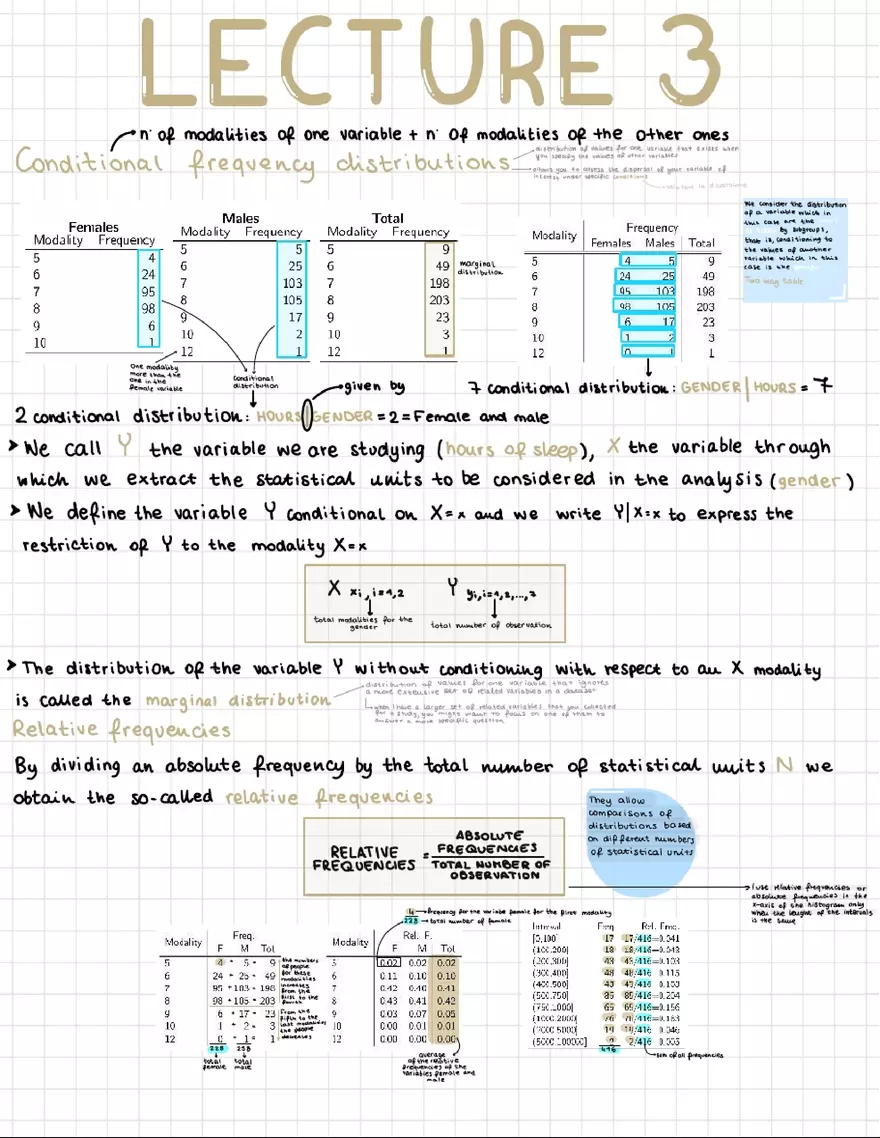 LECTURE 3
n° of modalities of one variable + n° of modalities of the other ones
Conditional frequency distributions
distribution of values for one variable that exists when
you specify the values of other variables
allows you to assess the dispersal of your variable of
interest under specific conditions
Females
Modality Frequency
5 4
6 24
7 95
8 98
9 6
10 1
Males
Modality Frequency
5 5
6 25
7 103
8 105
9 17
10 2
12 1
Total
Modality Frequency
5 9
6 49
7 198
8 203
9 23
10 3
12 1
marginal
distribution
Modality Frequency
Females Males Total
5 4 5 9
6 24 25 49
7 95 103 198
8 98 105 203
9 6 17 23
10 1 2 3
12 0 1 1
We consider the distribution
of a variable which in
this case are the
by subgroups,
that is, conditioning to
the values of another
variable which in this
case is the
Two way table
One modality
more than the
one in the
female variable
conditional
distribution
given by
7 conditional distribution: GENDER | HOURS = 7
2 conditional distribution: HOURS | GENDER = 2 = Female and male
➤ We call Y the variable we are studying (hours of sleep), X the variable through
which we extract the statistical units to be considered in the analysis (gender)
➤ We define the variable Y conditional on X=x and we write Y|X=x to express the
restriction of Y to the modality X=x
X xi,i=1,2 Y yi,i=1,2,...,7
total modalities for the
gender
total number of observation
➤ The distribution of the variable Y without conditioning with respect to an X modality
is called the marginal distribution
distribution of values for one variable that ignores
a more extensive set of related variables in a dataset
when I have a larger set of related variables that you collected
for a study, you might want to focus on one of them to
answer a more specific question
Relative frequencies
By dividing an absolute frequency by the total number of statistical units N we
obtain the so-called relative frequencies
They allow
comparisons of
distributions based
on different numbers
of statistical units
RELATIVE FREQUENCIES = ABSOLUTE FREQUENCIES / TOTAL NUMBER OF OBSERVATION
I use relative frequencies or
absolute frequencies in the
x-axis of the histogram only
when the lenght of the intervals
is the same
4 → frequency for the variable female for the first modality
228 → total number of female
Freq.
Modality F M Tot
5 4 + 5 = 9
6 24 + 25 = 49
7 95 + 103 = 198
8 98 + 105 = 203
9 6 + 17 = 23
10 1 + 2 = 3
12 0 + 1 = 1
228 258
total
female
total
male
the numbers
of people
for these
modalities
increases
from the
first to the
fourth
From the
fifth to the
last modalities
the people
decreases
Rel. F.
Modality F M Tot
5 0.02 0.02 0.02
6 0.11 0.10 0.10
7 0.42 0.40 0.41
8 0.43 0.41 0.42
9 0.03 0.07 0.05
10 0.00 0.01 0.01
12 0.00 0.00 0.00
average
of the relative
frequencies of the
variables female and
male
Interval Freq Rel. Freq.
[0,100] 17 17/416=0.041
(100,200] 18 18/416=0.043
(200,300] 43 43/416=0.103
(300,400] 48 48/416=0.115
(400,500] 43 43/416=0.103
(500,750] 85 85/416=0.204
(750,1000] 65 65/416=0.156
(1000,2000] 76 76/416=0.183
(2000,5000] 19 19/416=0.046
(5000,100000] 2 2/416=0.005
416
sum of all frequencies